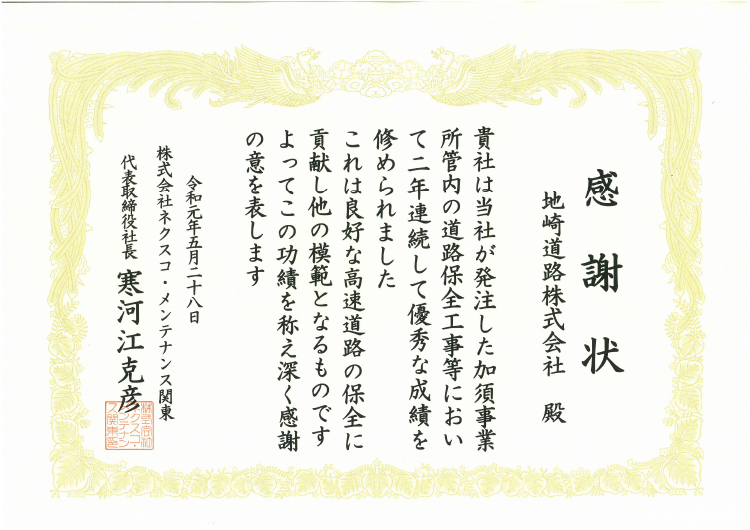 感謝状
地崎道路株式会社 殿
貴社は当社が発注した加須事業
所管内の道路保全工事等におい
て二年連続して優秀な成績を
修められました
これは良好な高速道路の保全に
貢献し他の模範となるものです
よってこの功績を称え深く感謝
の意を表します
令和元年五月二十八日
株式会社ネクスコ・メンテナンス関東
代表取締役社長 寒河江克彦